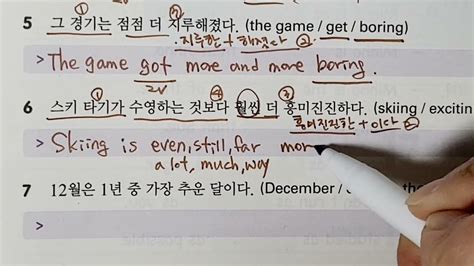 ①
②
5 그 경기는 점점 더 지루해졌다. (the game / get / boring)
지루한 + 해졌다 ②
> The game got more and more boring.
2V
① ④ ③
6 스키 타기가 수영하는 것보다 훨씬 더 흥미진진하다. (skiing / excitin
흥미진진한 + 이다 ②
> Skiing is even, still, far mor
a lot, much, way
7 12월은 1년 중 가장 추운 달이다. (December /
>